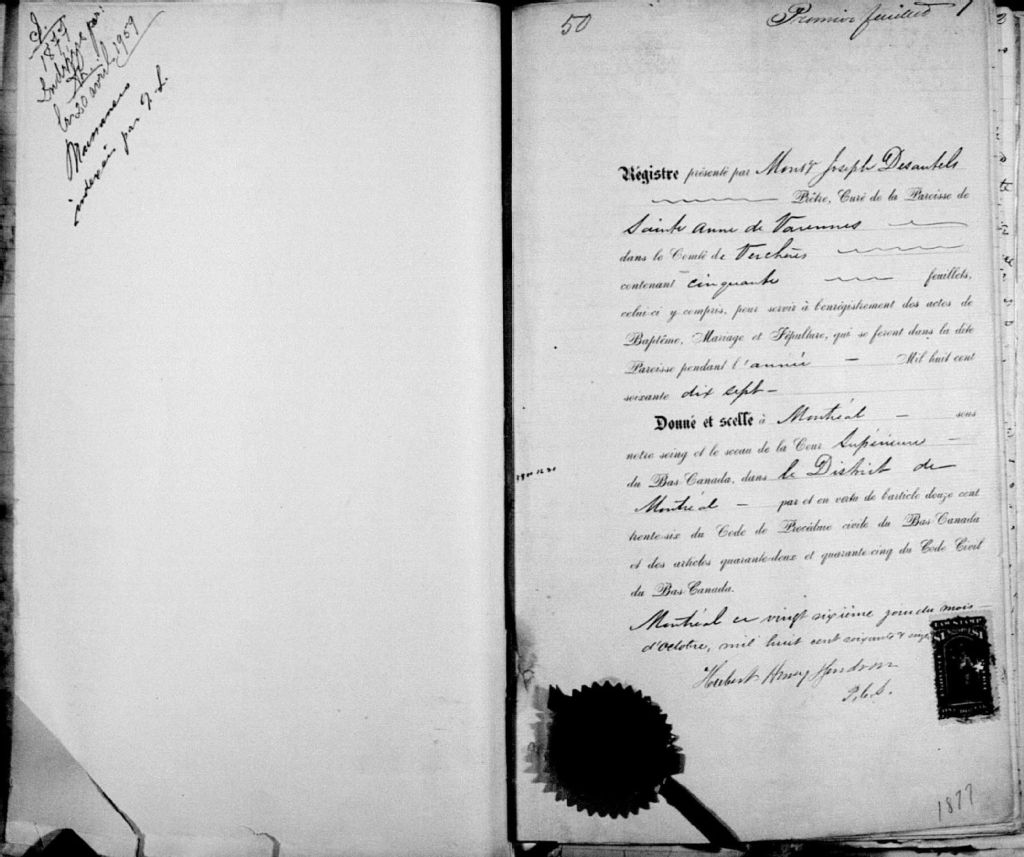 1877
Indexé par:
le 20 avril 1959
indexé par J. L.
50
Premier feuillet
Régistre présenté par Mons.r Joseph Desautels
Prêtre, Curé de la Paroisse de
Sainte Anne de Varennes
dans le Comté de Verchères
contenant cinquante feuillets,
celui-ci y compris, pour servir à l'enrégistrement des actes de
Baptême, Mariage et Sépulture, qui se feront dans la dite
Paroisse pendant l'année — Mil huit cent
soixante dix sept —
Donné et scellé à Montréal — sous
notre seing et le sceau de la Cour Supérieure —
du Bas-Canada, dans le District de
Montréal — par et en vertu de l'article douze cent
trente-six du Code de Procédure civile du Bas-Canada
et des articles quarante-deux et quarante-cinq du Code Civil
du Bas-Canada.
Montréal ce vingt sixième jour du mois
d'Octobre, mil huit cent soixante & seize
Hubert Henry
P.C.S.
1877